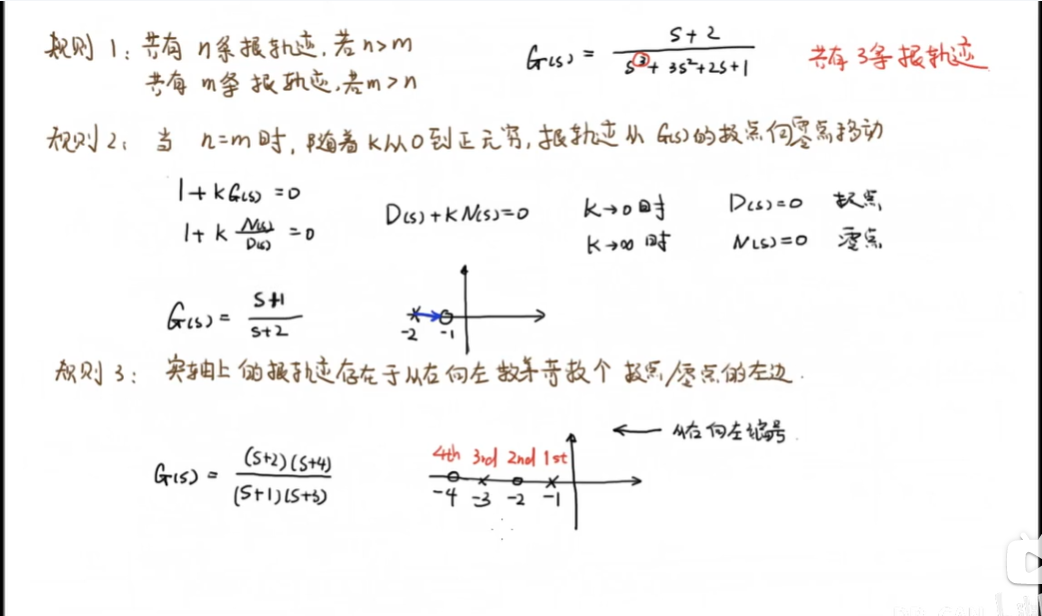 规则 1: 共有 n条根轨迹. 若 n>m
共有 m条 根轨迹, 若 m>n
G(s) = (s+2)/(s³+3s²+2s+1)
共有 3条 根轨迹
规则 2: 当 n=m 时, 随着 K从0到正无穷, 根轨迹从 G(s)的极点向零点移动
1+KG(s) =0
1+K N(s)/D(s) =0
D(s)+KN(s)=0
K→0 时 D(s)=0 极点
K→∞ 时 N(s)=0 零点
G(s) = (s+1)/(s+2)
-2 -1
规则 3: 实轴上的根轨迹存在于从右向左数第奇数个 极点/零点的左边.
← 从右向左编号.
G(s) = (s+2)(s+4)/(s+1)(s+3)
4th 3rd 2nd 1st
-4 -3 -2 -1